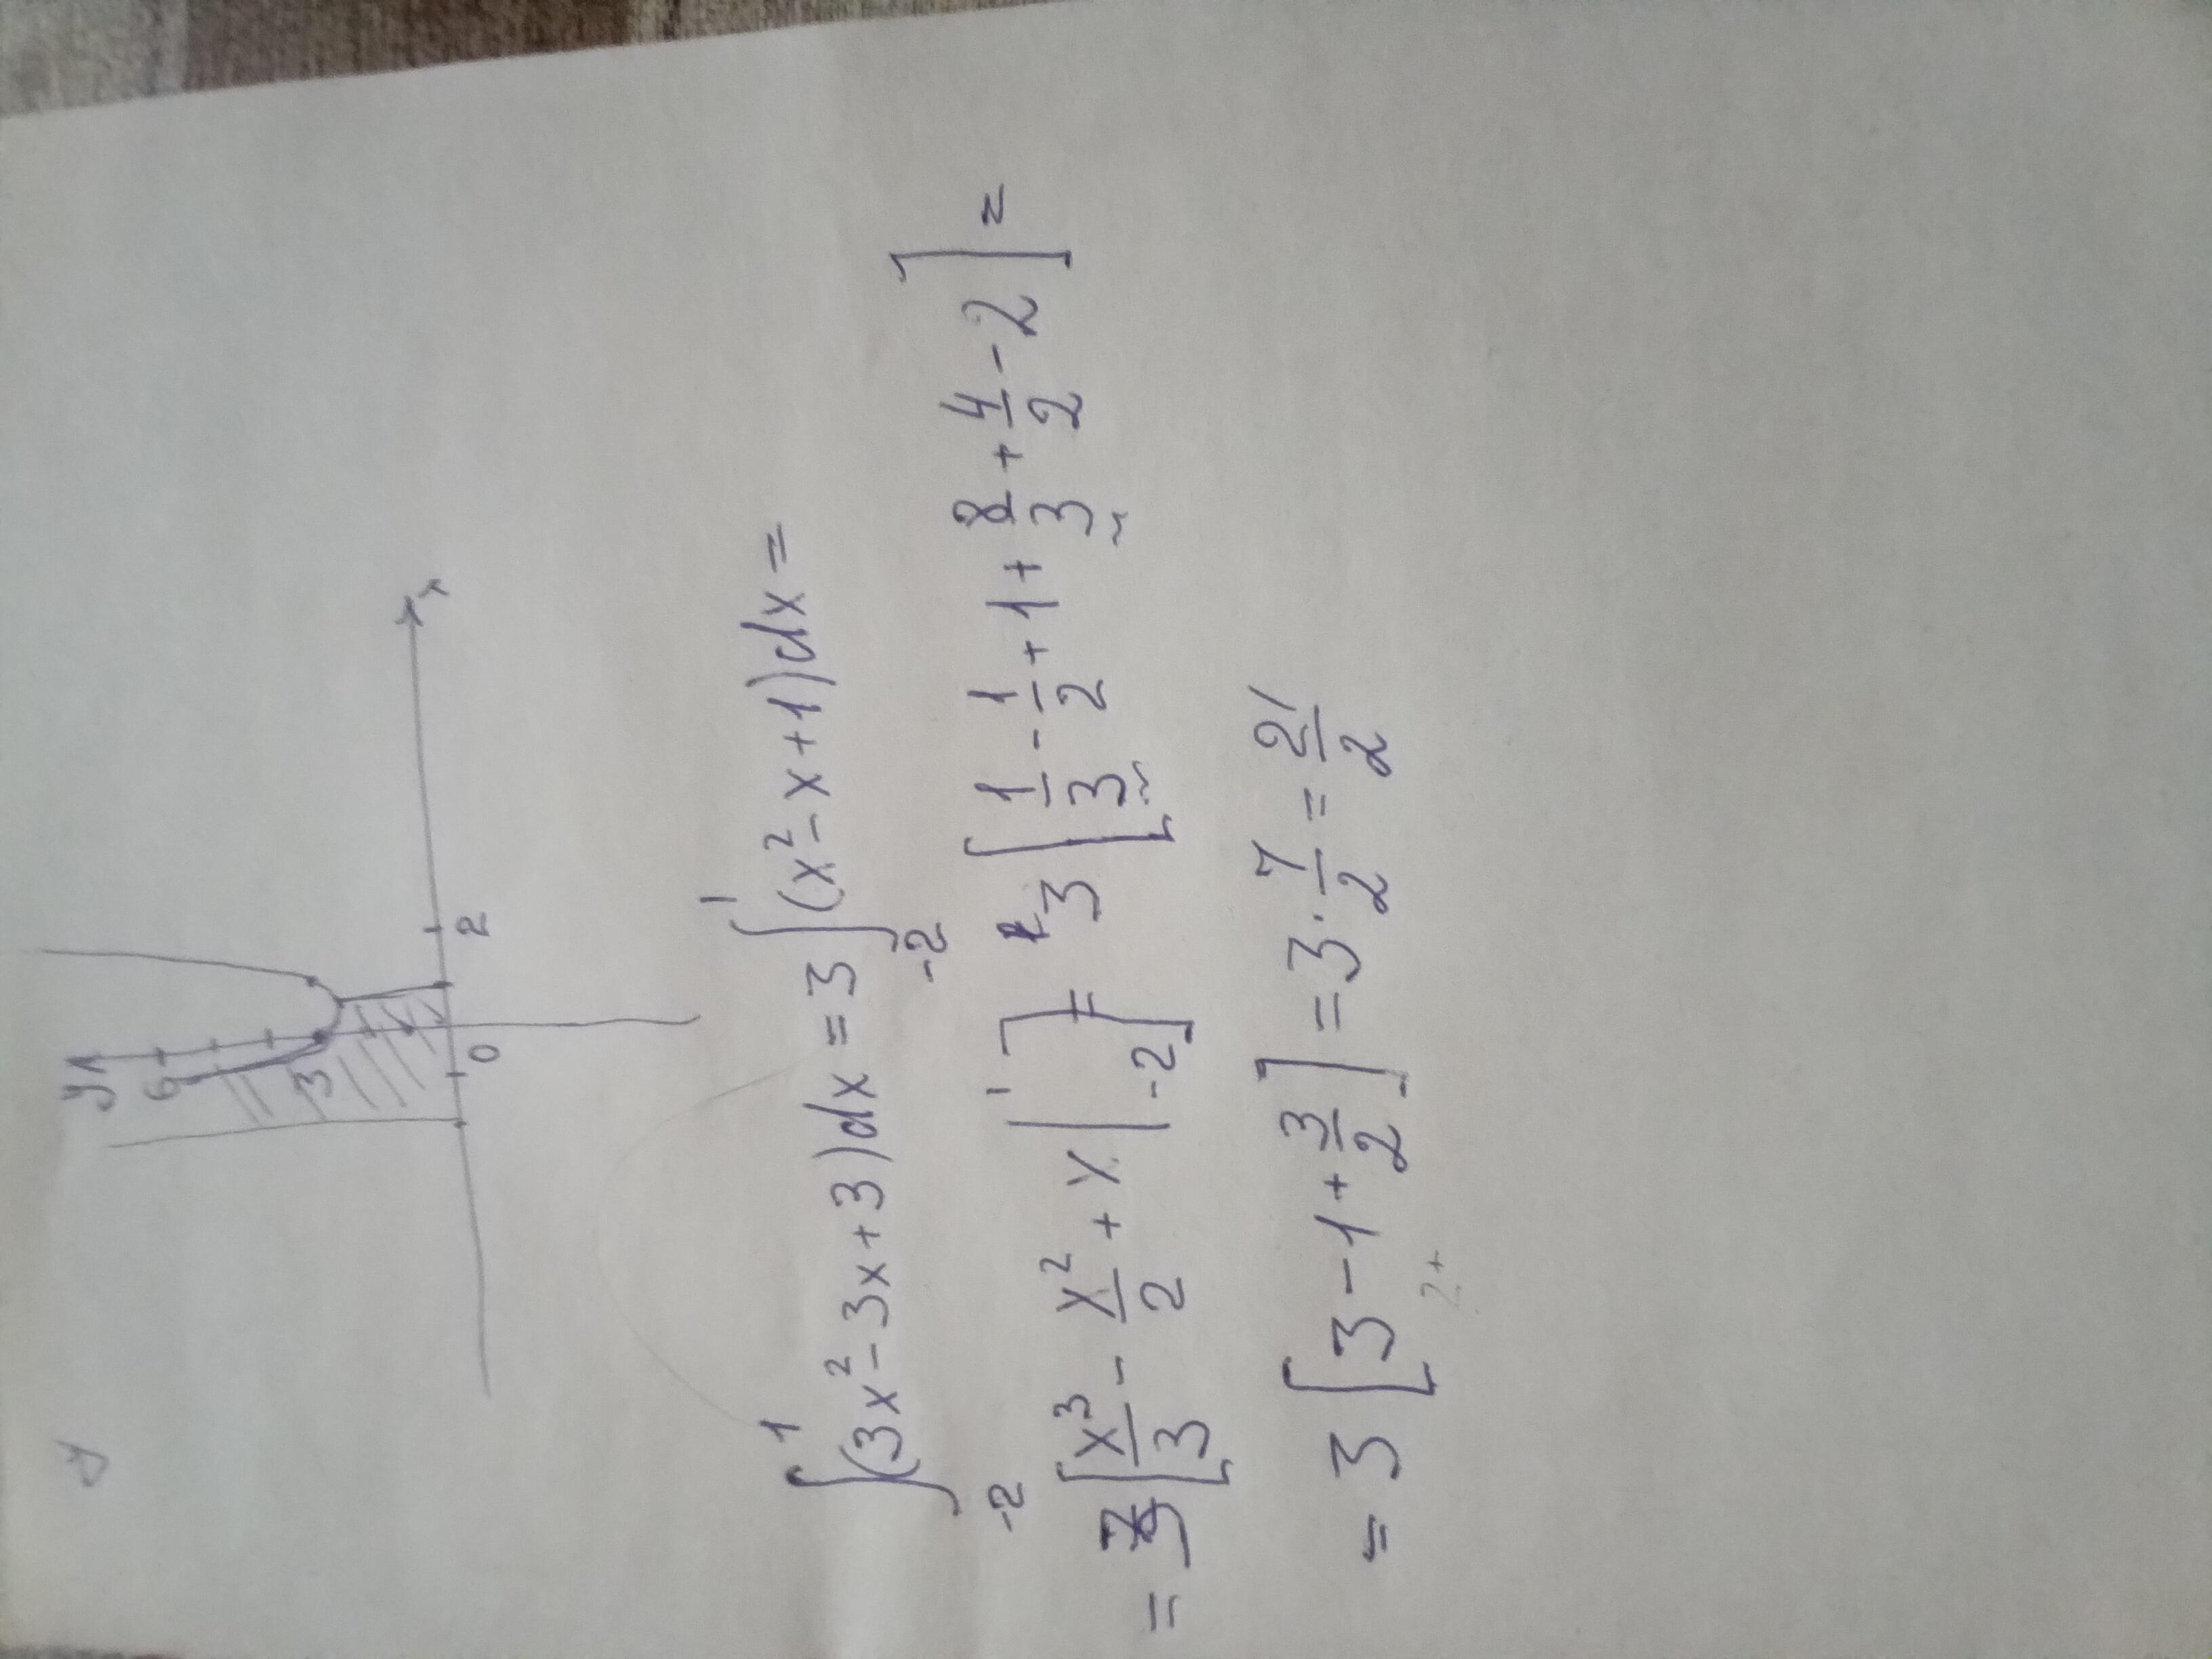 y
y
6
3
0
2
x
∫₋₂¹ (3x² - 3x + 3)dx = 3 ∫₋₂¹ (x² - x + 1)dx =
= 3 [x³/3 - x²/2 + x |₋₂¹] = 3 [1/3 - 1/2 + 1 + 8/3 + 4/2 - 2] =
= 3 [3 - 1 + 3/2] = 3 · 7/2 = 21/2
2+